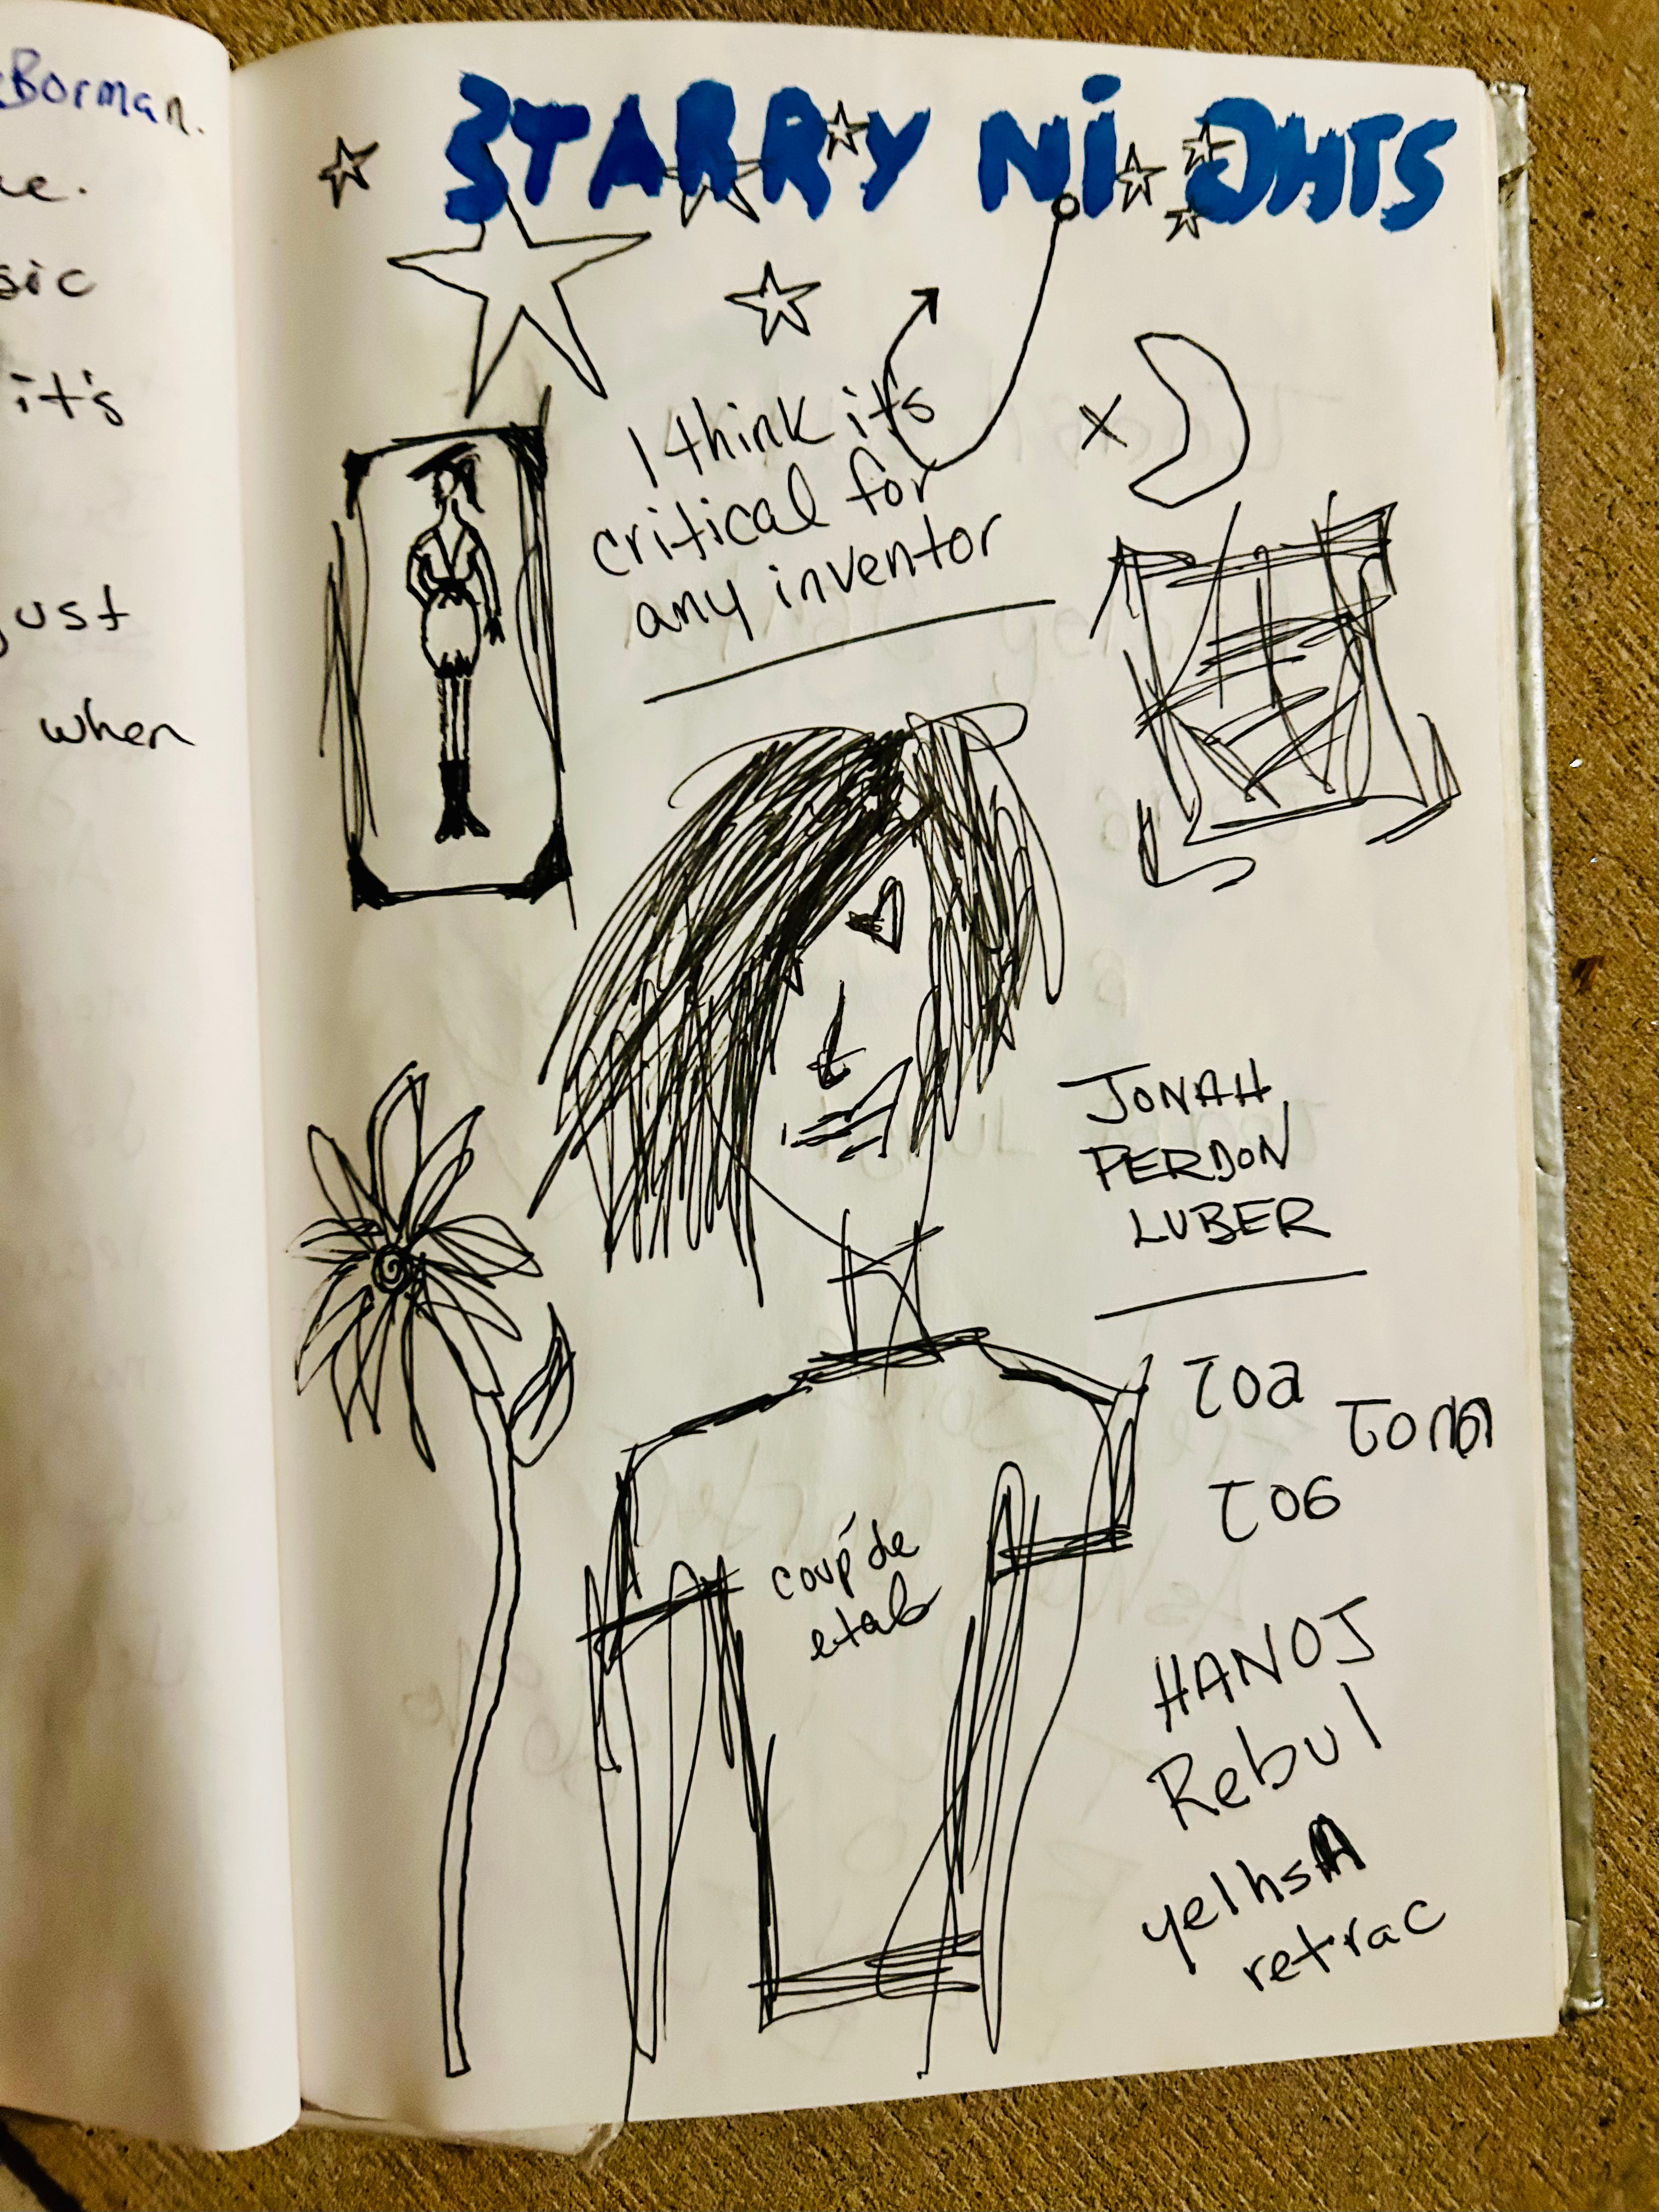 Borman.
sic
it's
just
when
STARRY NiGHTS
I think it's
critical for
any inventor
x
JONAH
PERDON
LUBER
TOa
TO6
coup de
etab
HANOJ
Rebul
yelhsA
retrac